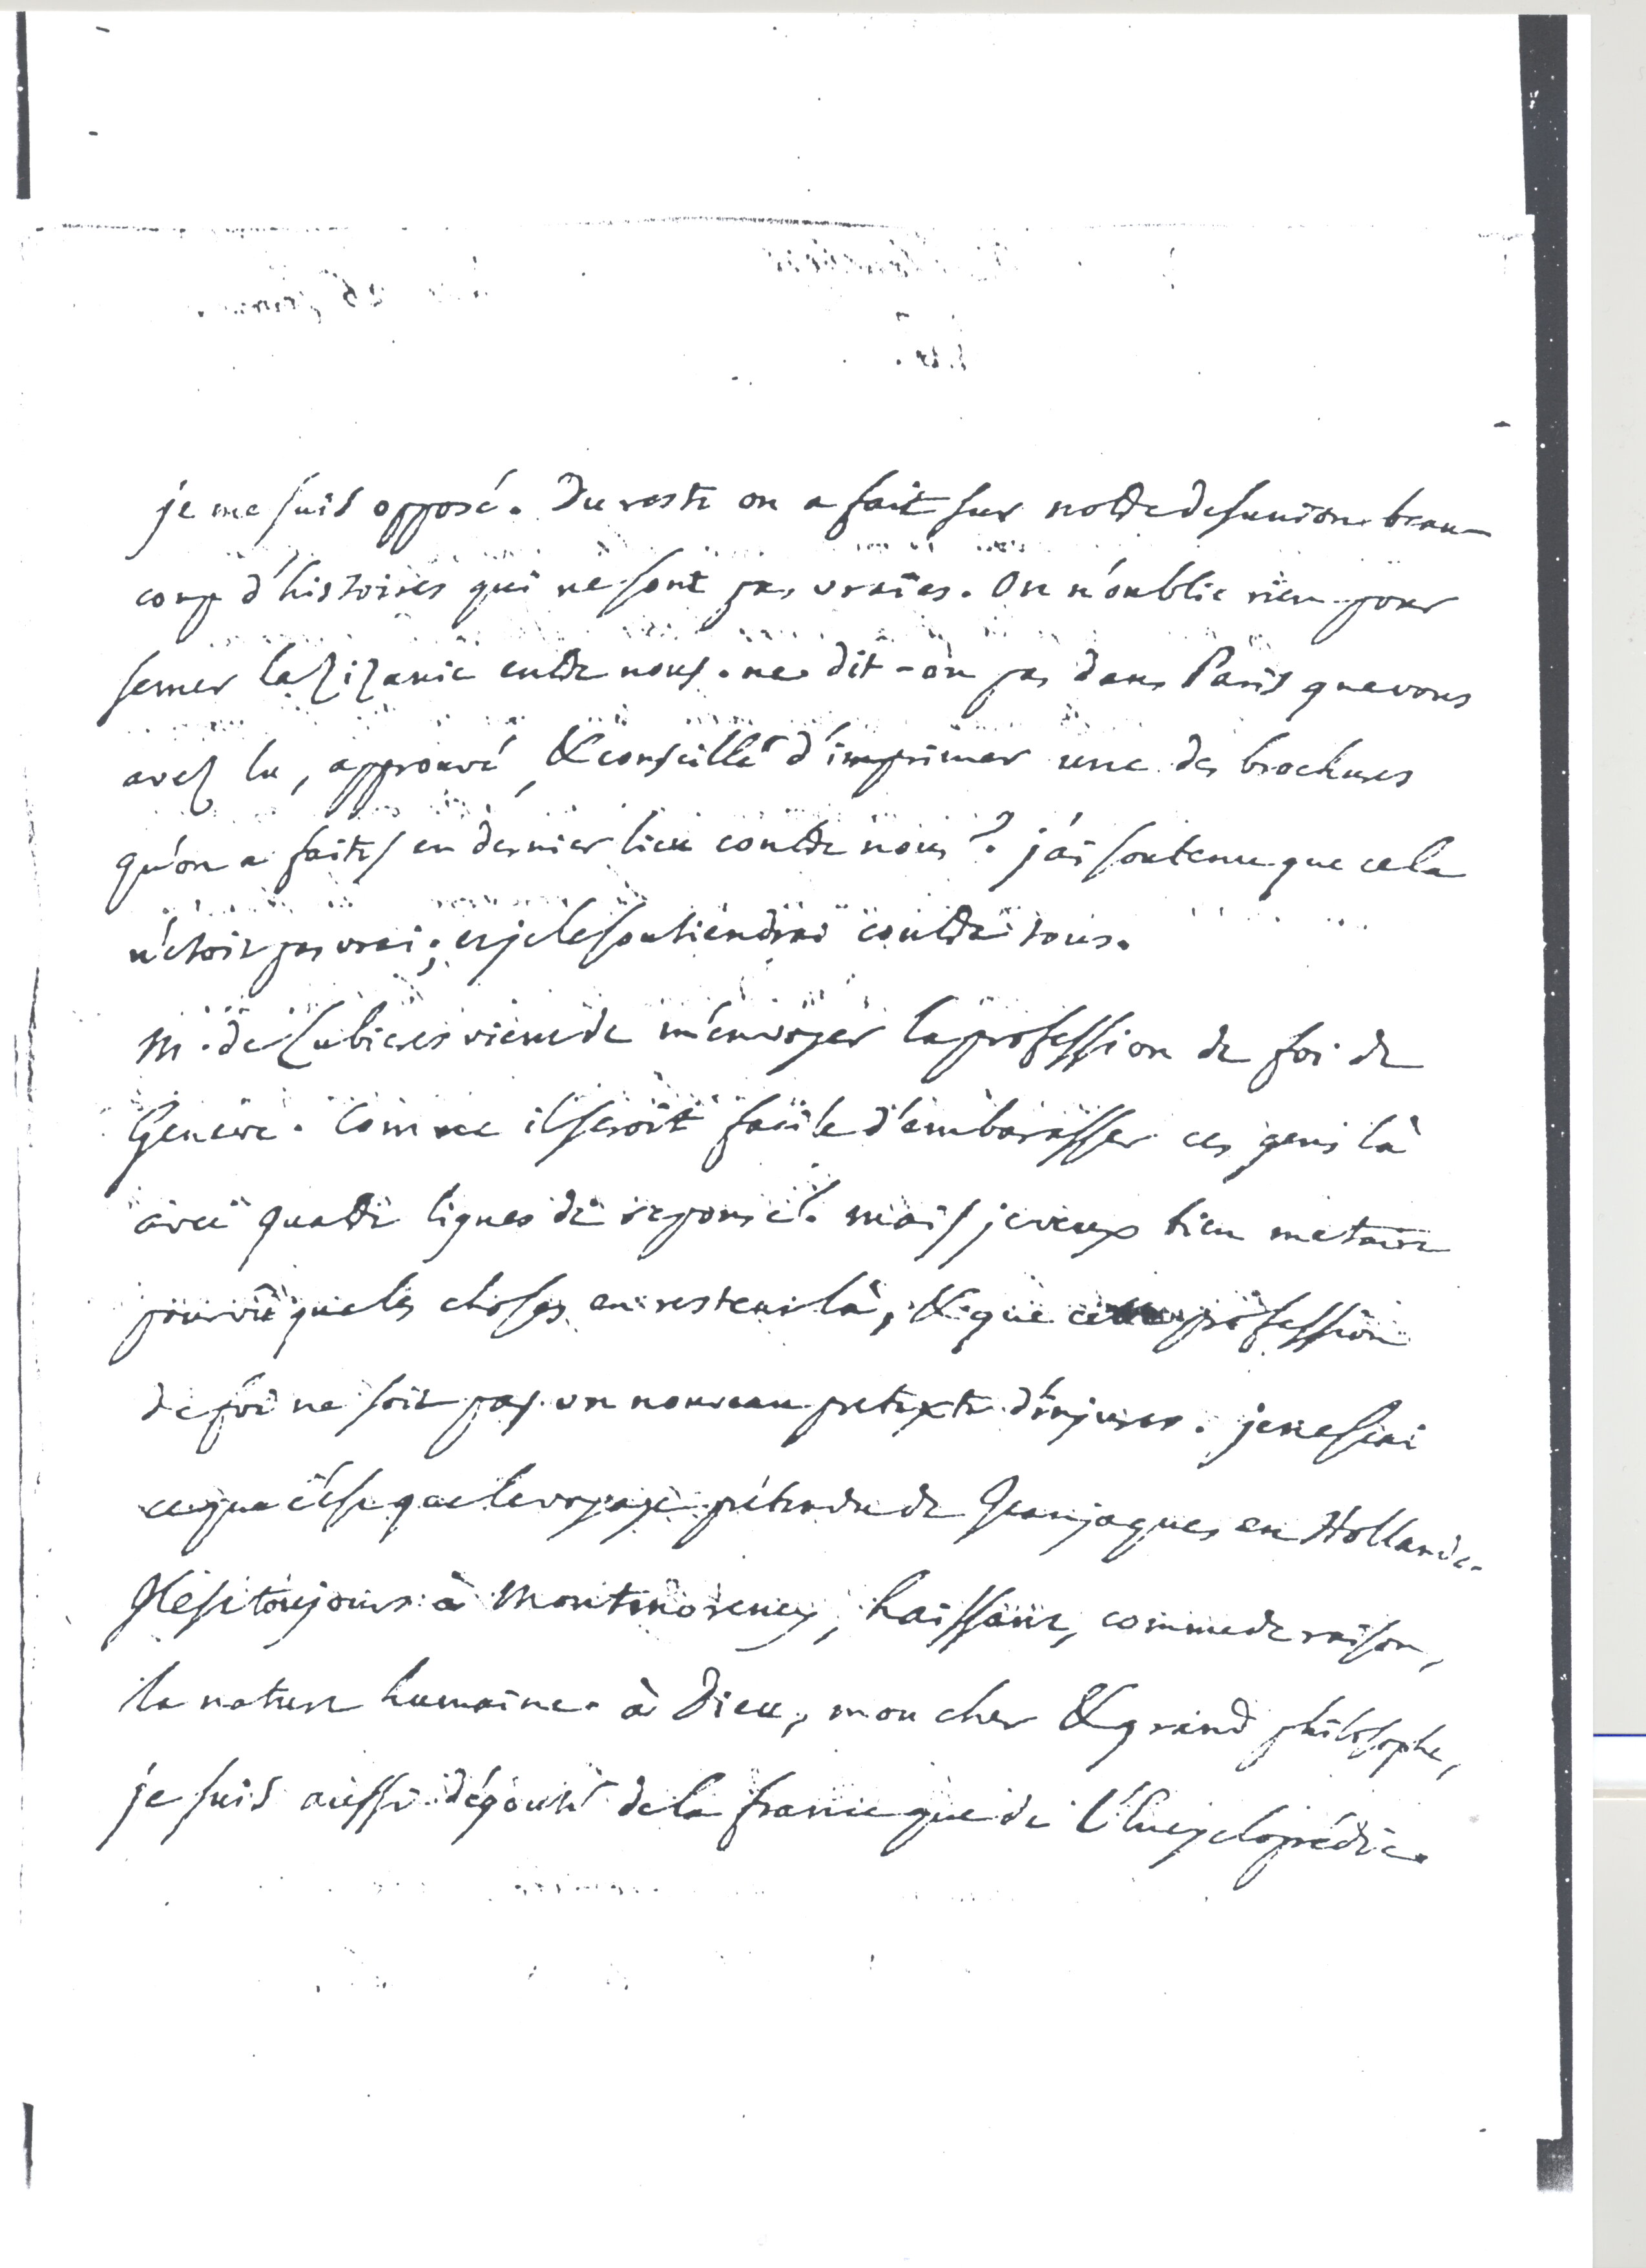 je me suis opposé. Du reste on a fait sur notre desunion beau-
coup d'histoires qui ne sont pas vraies. On n'oublie rien pour
semer la zizanie entre nous. ne dit-on pas dans Paris que vous
avez lu, approuvé, & conseillé d'imprimer une des brochures
qu'on a faites en dernier lieu contre nous? j'ai soutenu que cela
n'etoit pas vrai; et je le soutiendrai contre tous.
M. de Lubieres vient de m'envoyer la profession de foi de
Geneve. Comme il seroit facile d'embarasser ces gens là
avec quatre lignes de reponse! mais je veux bien me taire
pourvû que les choses en restent là, & que cette profession
de foi ne soit pas un nouveau pretexte d'injures. je ne sai
ce que c'est que le voyage prétendu de Jean jaques en Hollande.
Il est toujours à Montmorency, haissant, comme de raison,
la nature humaine. à Dieu, mon cher & grand philosophe,
je suis aussi dégouté de la france que de l'Encyclopédie.